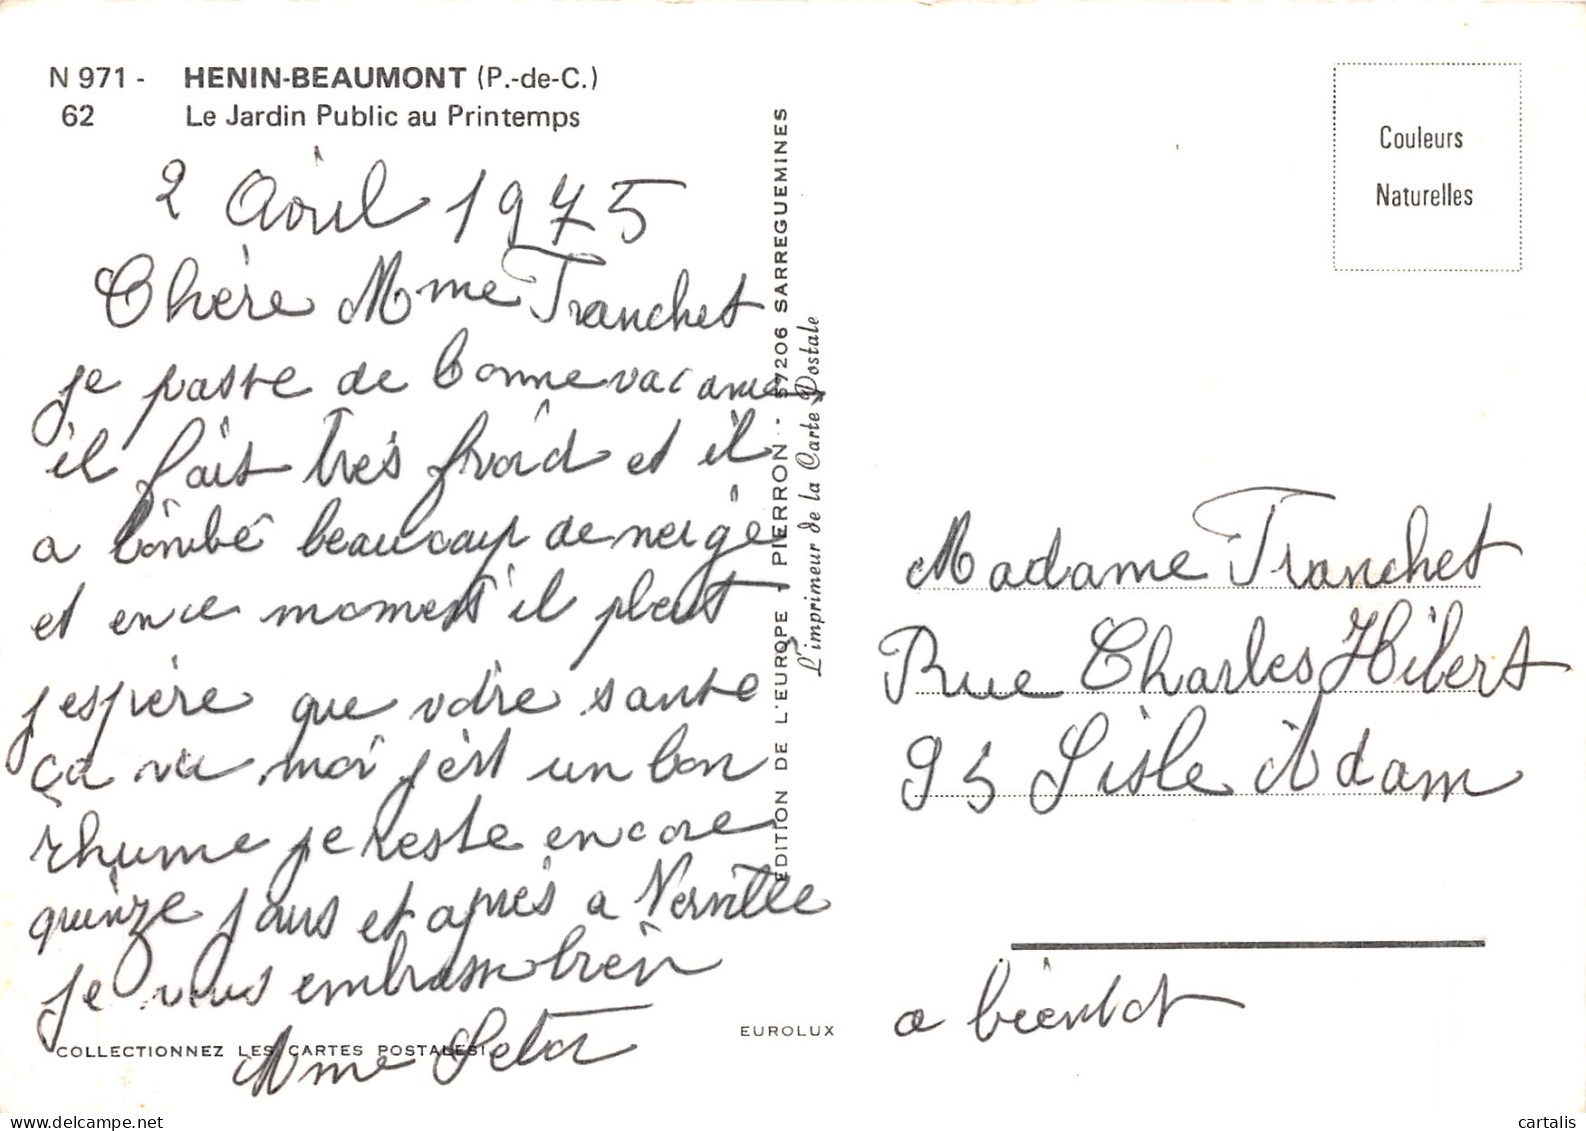 N 971 - HENIN-BEAUMONT (P.-de-C.)
62 Le Jardin Public au Printemps
2 Avril 1975
Chère Mme Tranchet
je passe de bonne vacances
il fait très froid et il
a tombé beaucoup de neige
et en ce moment il pleut
j espère que votre sante
ça va moi j'est un bon
rhume je reste encore
quinze jours et après a Nerville
je vous embrasse bien
Mme
COLLECTIONNEZ LES CARTES POSTALES!
EDITION DE L'EUROPE - PIERRON - 57206 SARREGUEMINES
L'imprimeur de la Carte Postale
EUROLUX
Couleurs
Naturelles
Madame Tranchet
Rue Charles Hilbert
95 L'isle Adam
a bientot
cartalis